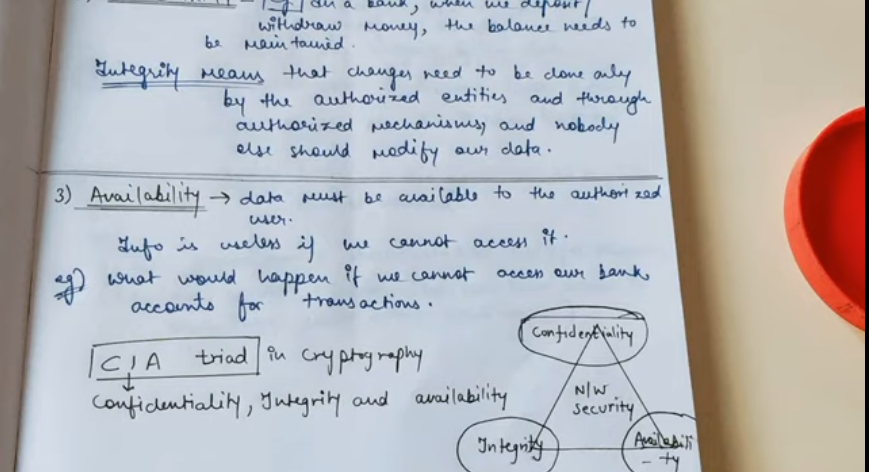 - [eg] In a bank, when we deposit/
withdraw money, the balance needs to
be maintained.
Integrity means that changes need to be done only
by the authorized entities and through
authorized mechanisms, and nobody
else should modify our data.
3) Availability → data must be available to the authorized
user.
Info is useless if we cannot access it.
eg) what would happen if we cannot access our bank
accounts for transactions.
CIA triad in cryptography
Confidentiality, Integrity and availability
Confidentiality
N/W
security
Integrity
Availabili
-ty